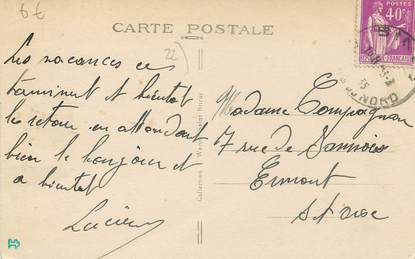 6€
CARTE POSTALE
22
40c
FRANÇAISE
Les vacances ce
terminent et bientot
le retour en attendant
bien le bonjour et
a bientot
Lucien
Madame Compagnon
7 rue de Sannois
Ermont
S et oise